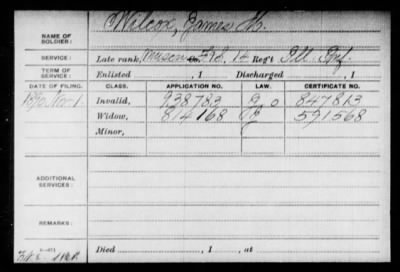 Wilcox, James H.
NAME OF
SOLDIER:
SERVICE:
Late rank, F&S, 14 Reg't Ill. Inf.
TERM OF
SERVICE:
Enlisted , 1 Discharged , 1
DATE OF FILING. CLASS. APPLICATION NO. LAW. CERTIFICATE NO.
Invalid, 938783 847813
Widow, 814168 591568
Minor,
ADDITIONAL
SERVICES:
REMARKS:
Died , 1 , at